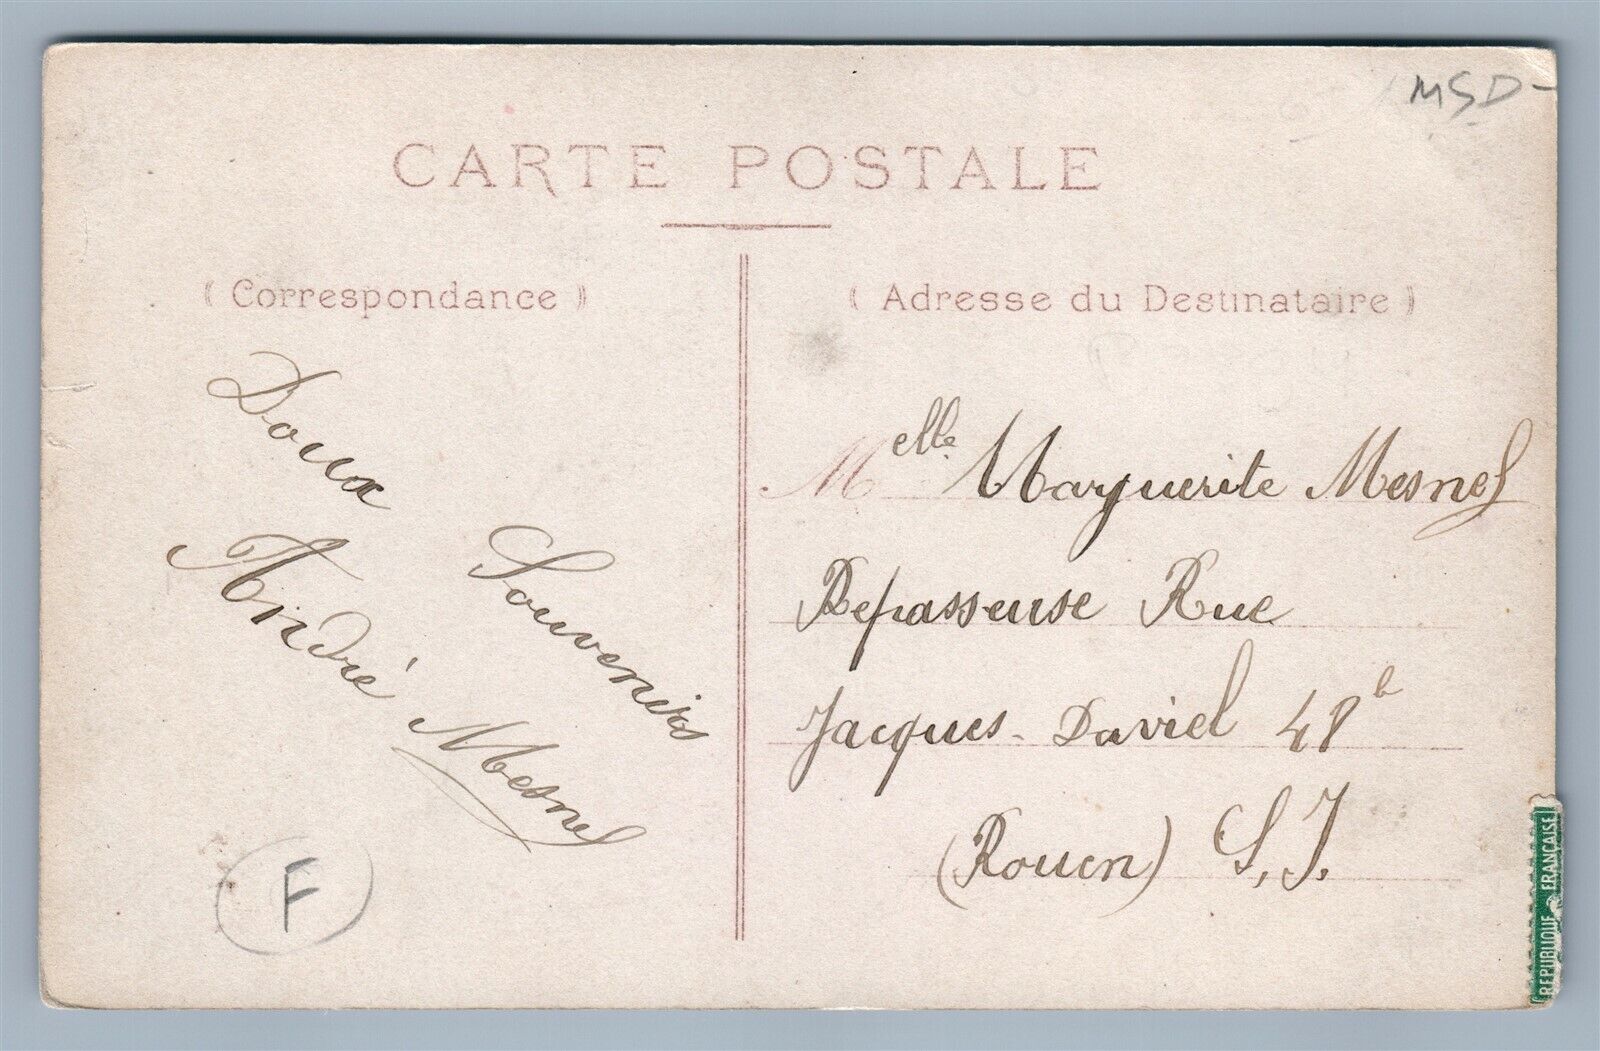 MSD-
CARTE POSTALE
(Correspondance)
(Adresse du Destinataire)
Doux
Souvenirs
André Mesnel
F
Melle Marguerite Mesnel
Repasseuse Rue
Jacques-Daviel 48 b
(Rouen) S. I.
REPUBLIQUE FRANÇAISE